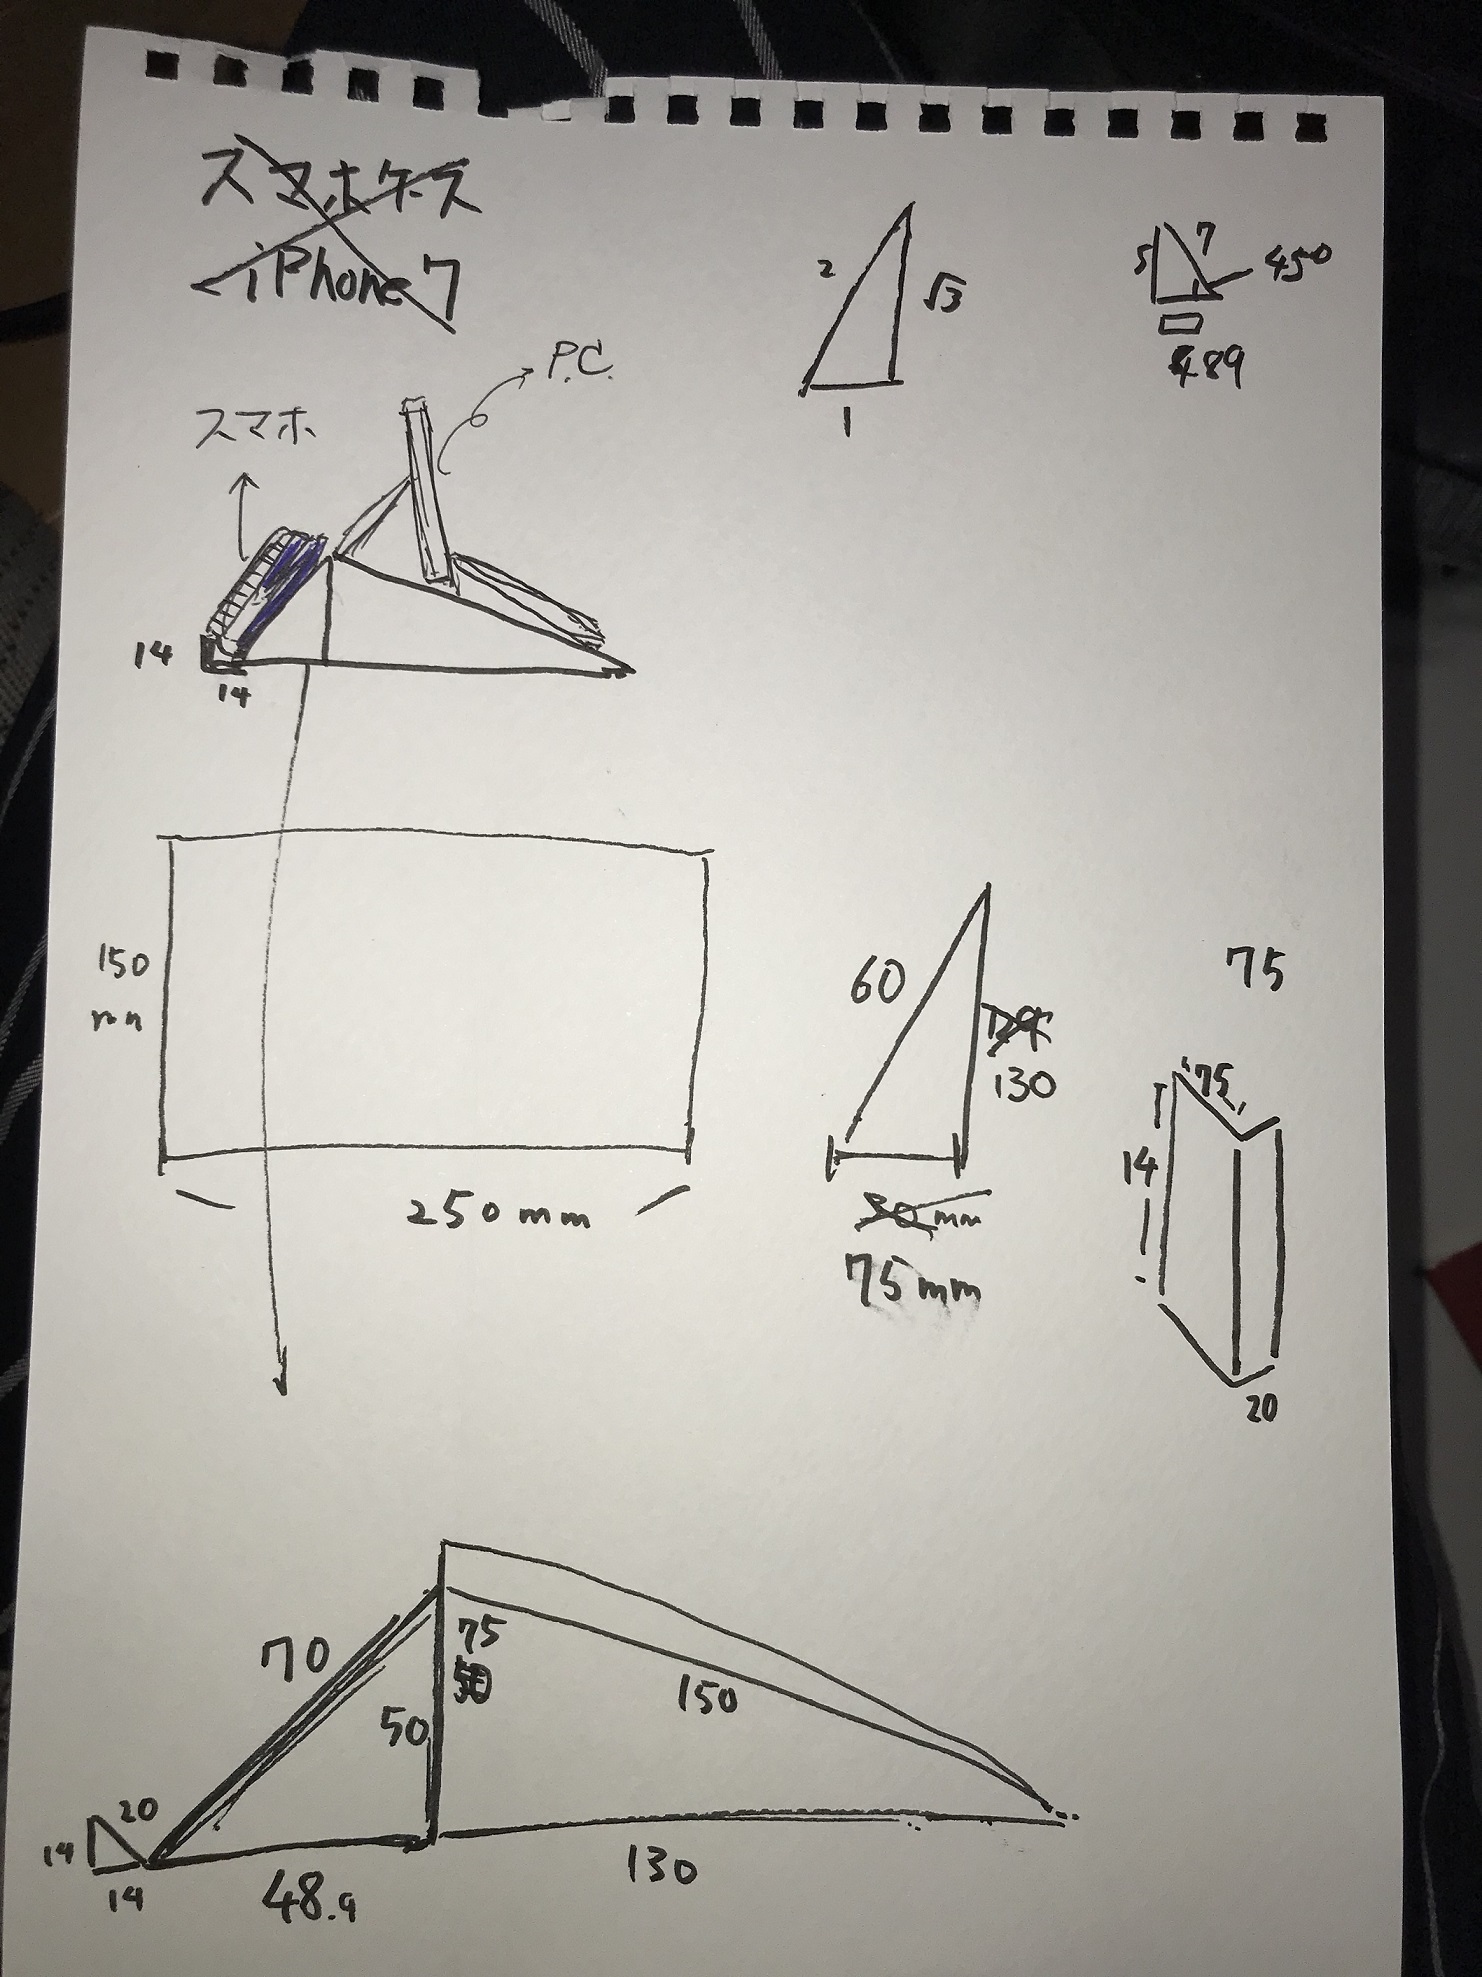 スマホケース
iPhone7
2
√3
1
5
7
45°
489
P.C.
スマホ
14
14
150
mm
250mm
60
130
75mm
75
75
14
20
70
75
50
150
20
14
14
48.9
130